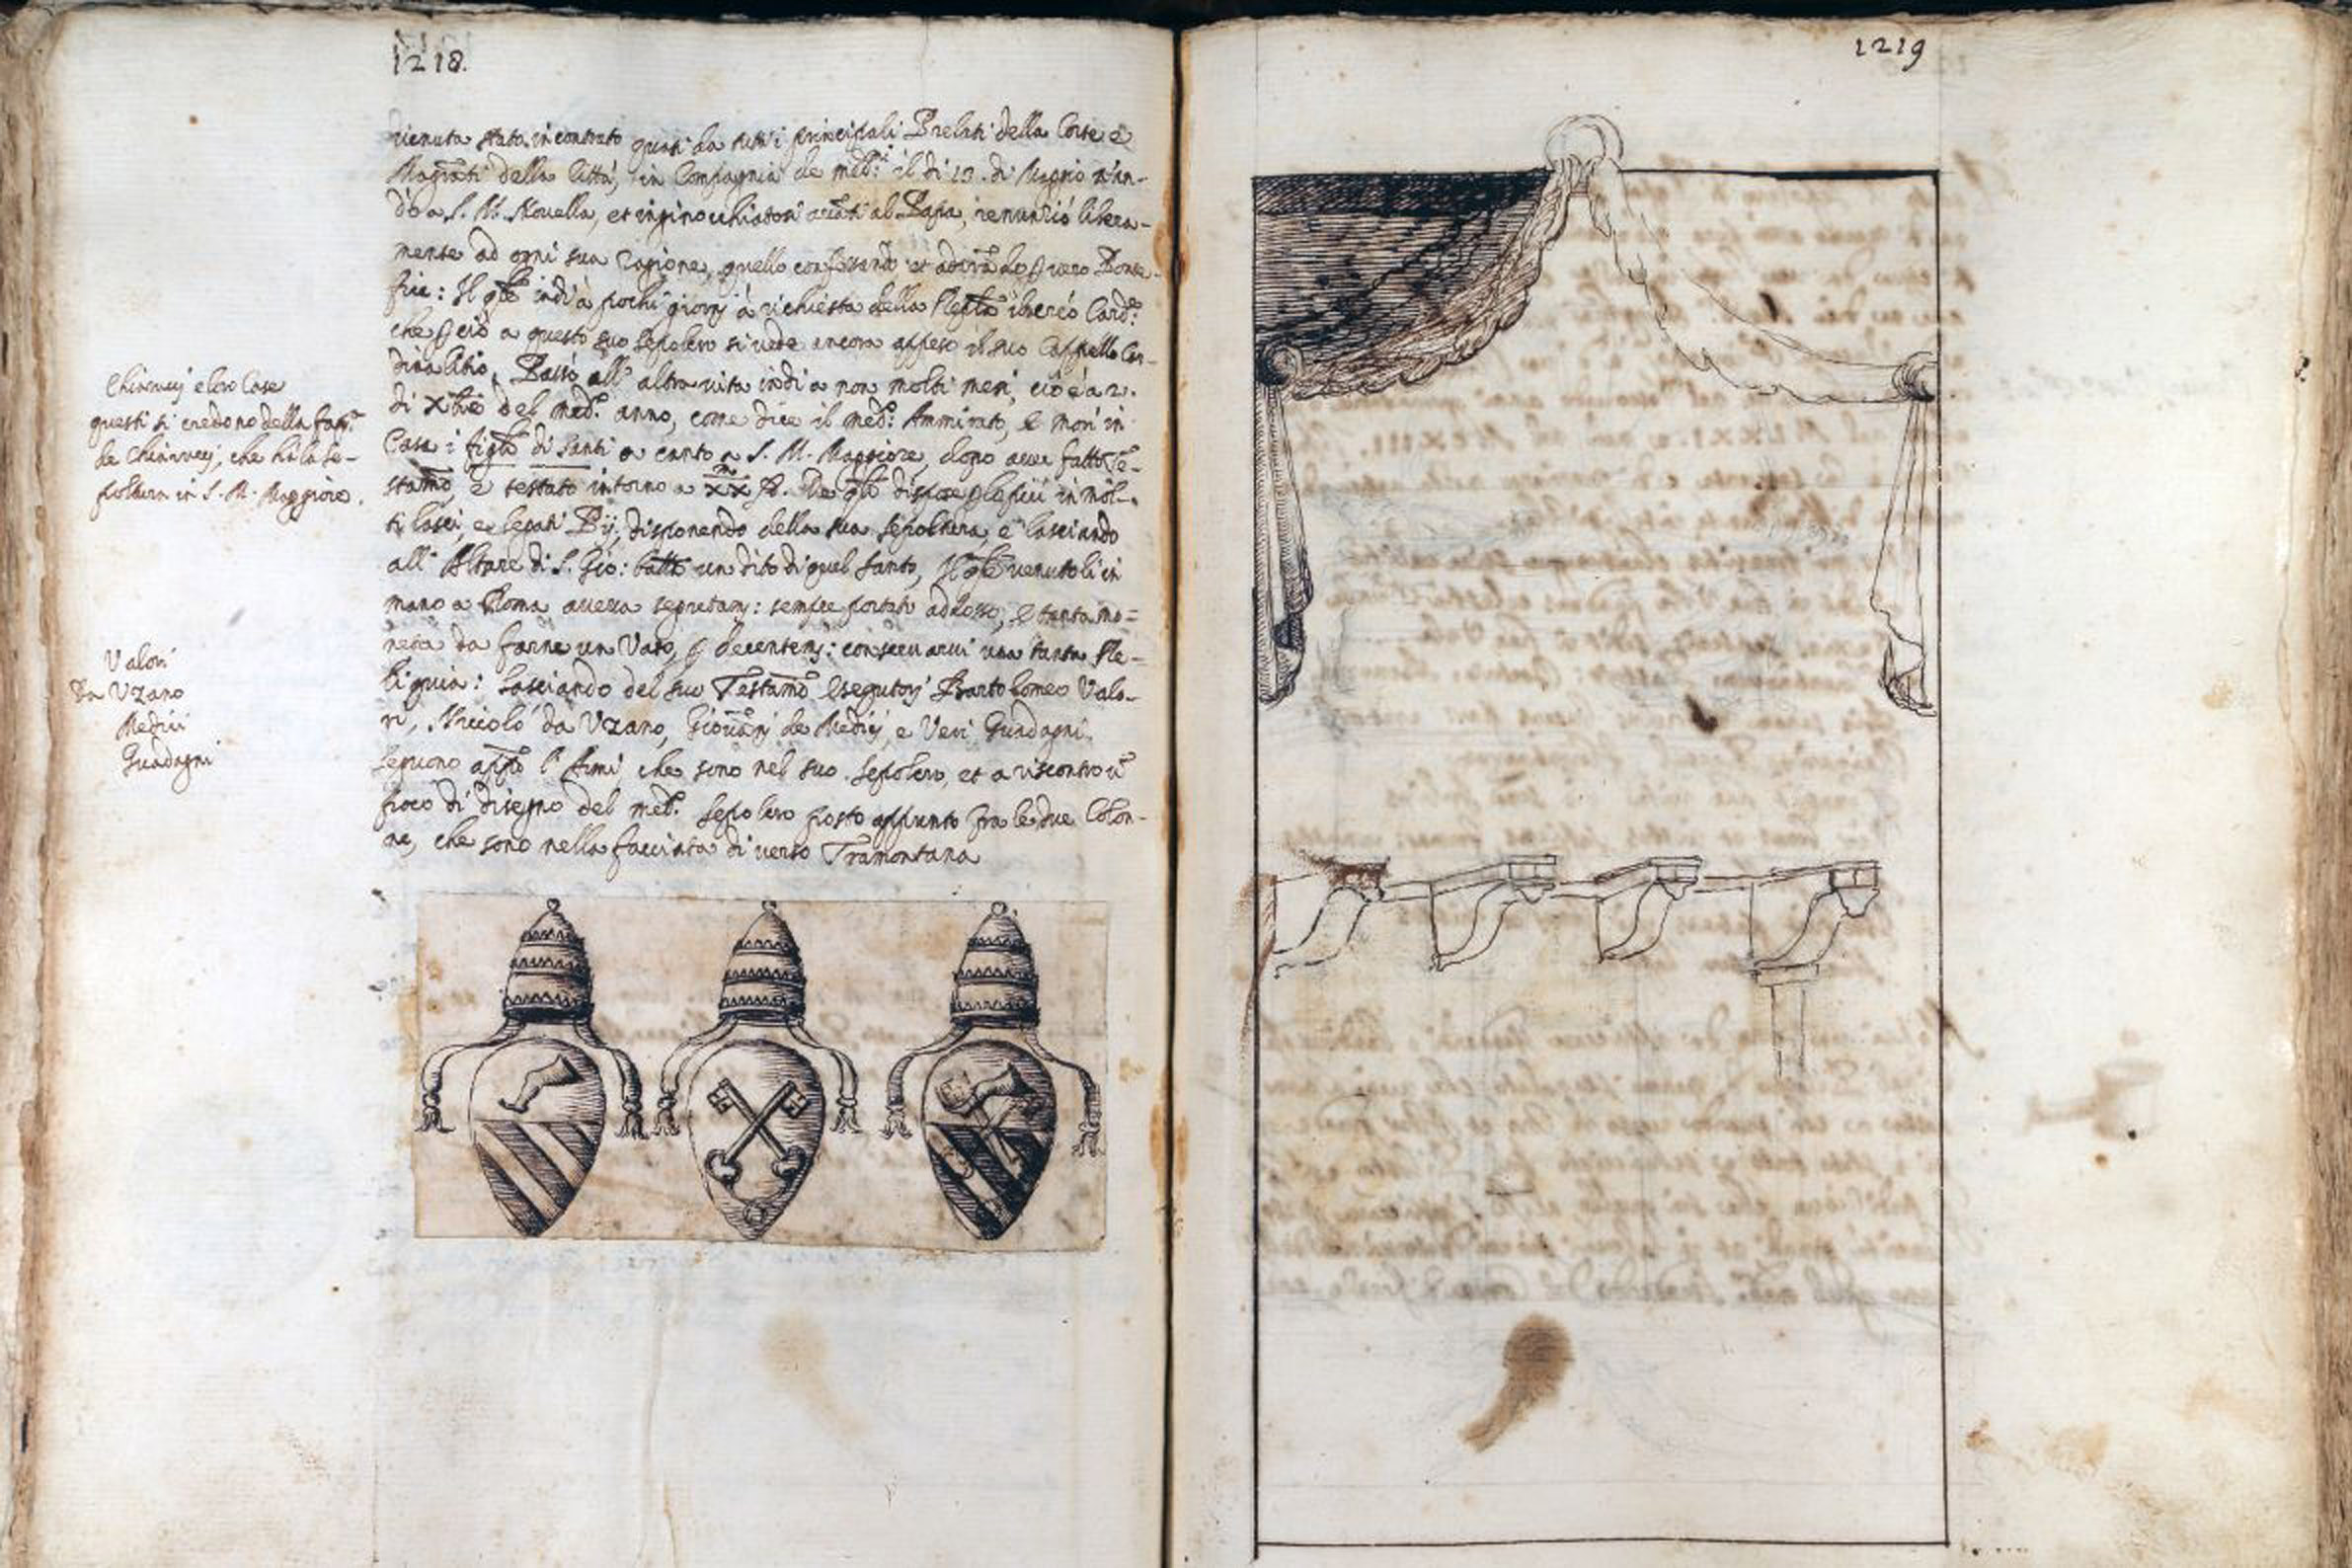 1218.
venuta stata incontrato quasi da tutti i principali Prelati della Corte e
Magrati della Città, in Compagnia de med.i il di 13. di Maggio n'an-
dò a S. M. Novella, et inginocchiatosi avāti al Papa, renunziò libera-
mente ad ogni sua Cagione, quello confessando et vero Ponte-
fice: Il qle indi à pochi giorni à richiesta della Card.e
che ciò a questo suo sepolcro si vede ancora appeso il suo Cappello Car-
dinalitio. Passò all' altra vita indi a non molti mesi, cioè a 21.
di Xbre del med.o anno, come dice il med.o Ammirato, e morì in
Casa i figli di Santi a canto a S. M. Maggiore, dopo aver fatto Te-
stamō, e testato intorno a XX m De qli dispose in mol-
ti lasci, e legati Pij, disponendo della sua sepoltura, e lasciando
all' Altare di S. Gio: Batta un dito di quel Santo, Il qle venutoli in
mano a Roma aveva segretam: sempre portato addosso, e tanta mo=
neta da farne un Vaso, decentem: conservarvi una tanta Re-
liquia: Lasciando del suo Testamō esegutori Bartolomeo Valo-
ri, Niccolò da Uzano, Giovāni de Medici, e Veri Guadagni.
Seguono app̄o l'Armi che sono nel suo Sepolcro, et a riscontro ū
poco di disegno del med.o Sepolcro posto appunto fra le due Colon-
ne, che sono nella facciata di verso Tramontana
Chiarucij e loro Case
questi si credono della fam.a
de Chiarucij, che hà la se-
poltura in S. M. Maggiore.
Valori
Da Uzano
Medici
Guadagni
1219